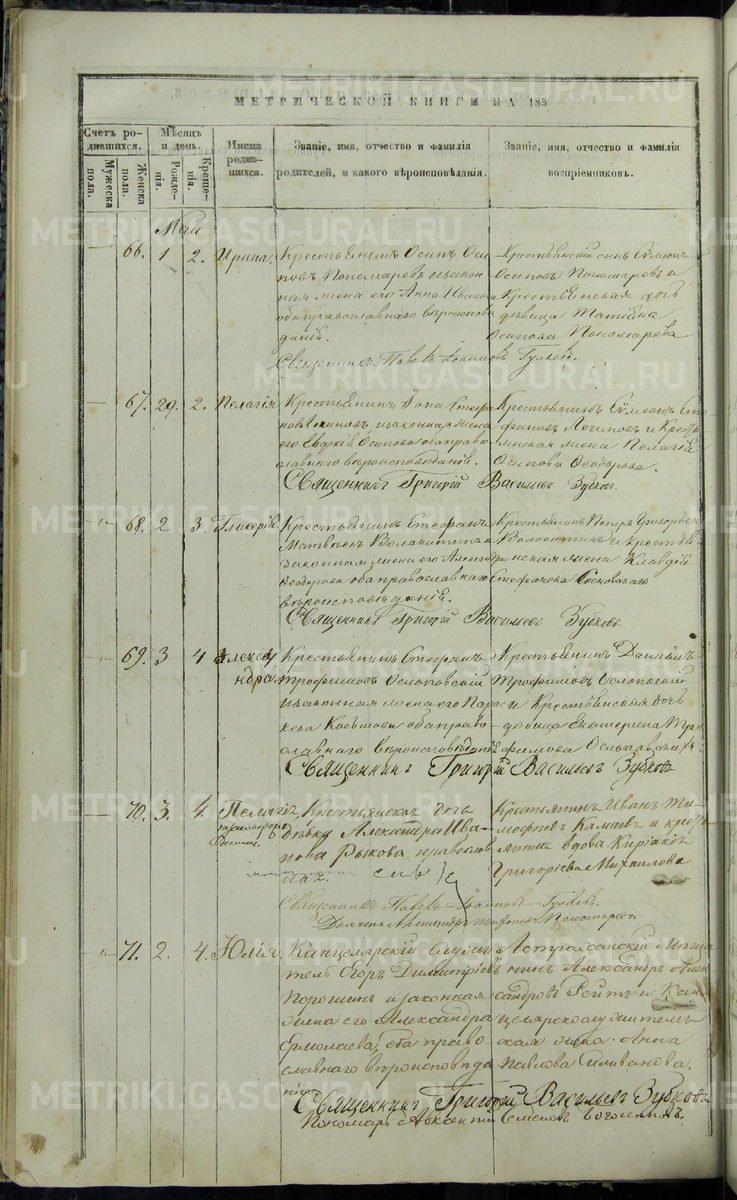 МЕТРИЧЕСКОЙ КНИГИ НА 185
Счетъ родившихся.
Мужеска пола.
Женска пола.
Мѣсяцъ и день.
Рожденія.
Крещенія.
Имена родившихся.
Званіе, имя, отчество и фамилія родителей, и какого вѣроисповѣданія.
Званіе, имя, отчество и фамилія воспріемниковъ.
Май
66. 1 2. Ирина.
Крестьянинъ Осипъ Осиповъ Пономаревъ и законная жена его Анна Иванова оба православнаго вѣроисповѣданія.
Крестьянскій сынъ Симеонъ Осиповъ Пономаревъ и Крестьянская дочь дѣвица Татіана Осипова Пономарева
Священникъ Павелъ Іоанновъ Гуляевъ.
67. 29. 2. Пелагія
Крестьянинъ Іона Стефановъ Логиновъ и законная жена его Евдокія Осипова оба православнаго вѣроисповѣданія.
Крестьянинъ Симеонъ Стефановъ Логиновъ и Крестьянская жена Пелагія Осипова Ѳеодорова.
Священникъ Григорій Васильевъ Зубковъ.
68. 2. 3. Гликерія
Крестьянинъ Стефанъ Матвѣевъ и законная жена его Александра Ѳеодорова оба православнаго вѣроисповѣданія.
Крестьянинъ Петръ Григорьевъ и Крестьянская жена Клавдія Стефанова
Священникъ Григорій Васильевъ Зубковъ
69. 3 4 Александра.
Крестьянинъ Стефанъ Трофимовъ Ослоповскій и законная жена его оба православнаго вѣроисповѣданія
Крестьянинъ Даніилъ Трофимовъ Ослоповскій и Крестьянская дочь дѣвица Екатерина Трофимова Ослоповская.
Священникъ Григорій Васильевъ Зубковъ
70. 3. 4. Пелагія
незаконнорожденная
Крестьянская дочь дѣвка Александра Иванова Рыкова, православная.
Крестьянинъ Иванъ Тимофеевъ Камаевъ и крестьянская вдова Киріакія Григоріева Михаилова
Священникъ Павелъ Іоанновъ Гуляевъ.
Дьячекъ Александръ Пономаревъ.
71. 2. 4. Юлія
Канцелярскій служитель Егоръ Димитріевъ Порошинъ и законная жена его Александра Ермолаева, оба православнаго вѣроисповѣданія
Астраханскій мѣщанинъ Александръ Александровъ Рейтъ и Канцелярского служителя жена Анна Павлова Селиванова.
Священникъ Григорій Васильевъ Зубковъ
Пономарь Авксентій
METRIKI.GASO-URAL.RU